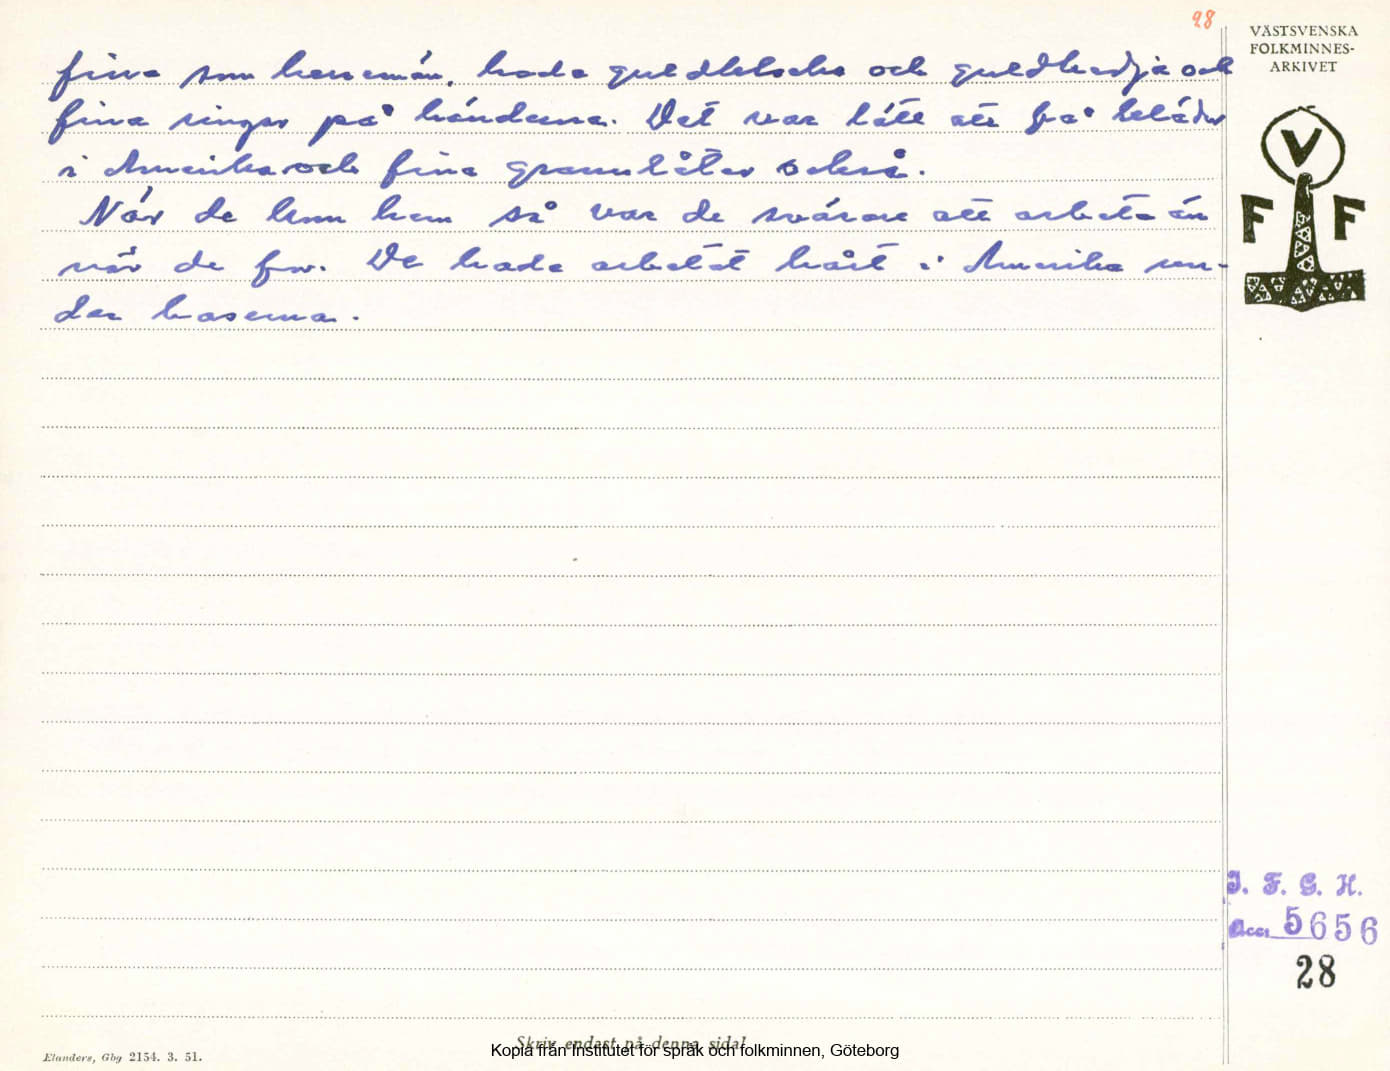 28
VÄSTSVENSKA
FOLKMINNES-
ARKIVET
V
F F
fina som herremän, hade guldklocka och guldkedja och
fina ringar på händerna. Det var lätt att få kläder
i Amerika och fina grannlåter också.
När de kom hem så var de svårare att arbeta än
när de for. De hade arbetat hårt i Amerika un-
der baserna.
I. F. G. H.
Acc. 5656
28
Skriv endast på denna sida!
Kopia från Institutet för språk och folkminnen, Göteborg
Elanders, Gbg 2154. 3. 51.